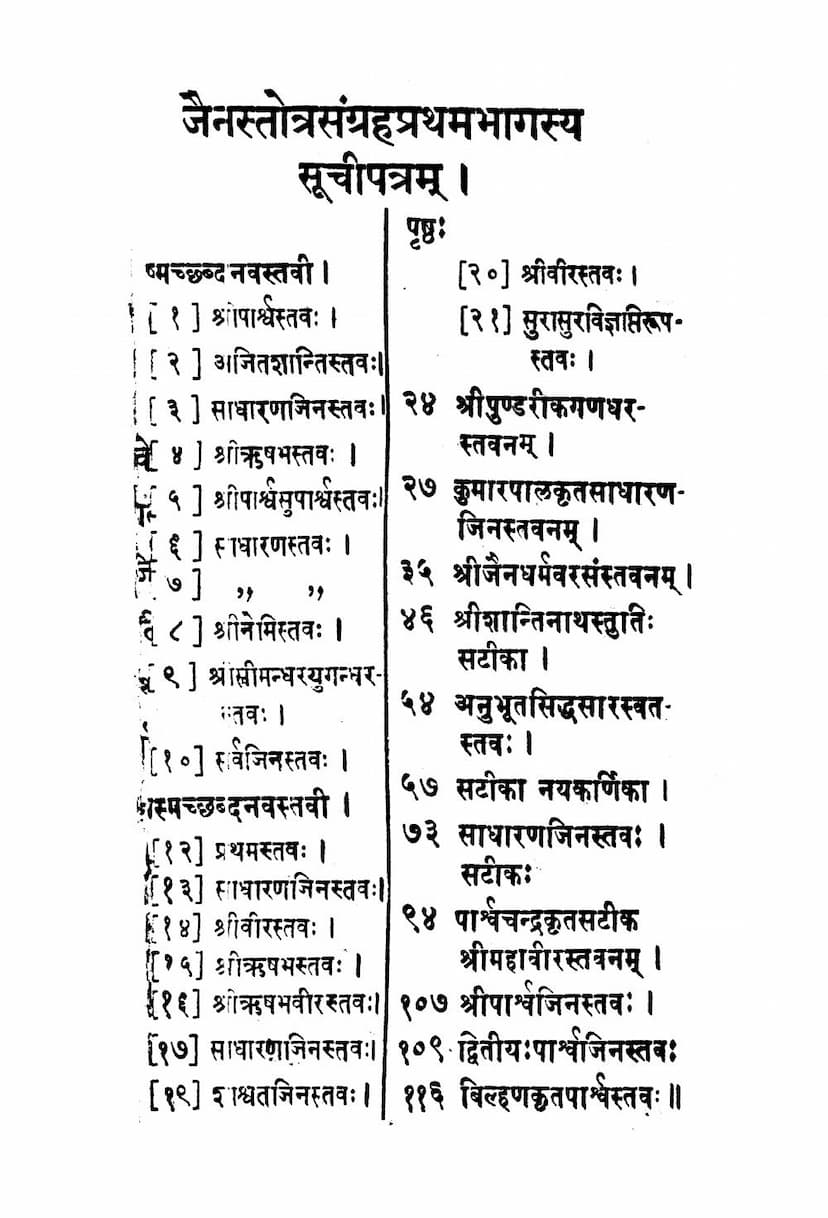 जैनस्तोत्रसंग्रहप्रथमभागस्य
सूचीपत्रम् ।
ष्मच्छब्दनवस्तवी ।
[ १ ] श्रीपार्श्वस्तवः ।
[ २ ] अजितशान्तिस्तवः।
[ ३ ] साधारणजिनस्तवः।
४ ] श्रीऋषभस्तवः ।
५ ] श्रीपार्श्वसुपार्श्वस्तवः।
[ ६ ] साधारणस्तवः ।
७ ] ,, ,,
८ ] श्रीनेमिस्तवः ।
९ ] श्रीसीमन्धरयुगन्धर-
स्तवः ।
[१०] सर्वजिनस्तवः ।
स्मच्छब्दनवस्तवी ।
[१२] प्रथमस्तवः ।
[१३] साधारणजिनस्तवः।
[१४] श्रीवीरस्तवः ।
[१५] श्रीऋषभस्तवः ।
[१६] श्रीऋषभवीरस्तवः।
[१७] साधारणजिनस्तवः।
[१९] शाश्वतजिनस्तवः ।
पृष्ठः
[२०] श्रीवीरस्तवः ।
[२१] सुरासुरविज्ञप्तिरूप-
स्तवः ।
२४ श्रीपुण्डरीकगणधर-
स्तवनम् ।
२७ कुमारपालकृतसाधारण-
जिनस्तवनम् ।
३५ श्रीजैनधर्मवरसंस्तवनम् ।
४६ श्रीशान्तिनाथस्तुतिः
सटीका ।
५४ अनुभूतसिद्धसारस्वत-
स्तवः ।
५७ सटीका नयकर्णिका ।
७३ साधारणजिनस्तवः ।
सटीकः
९४ पार्श्वचन्द्रकृतसटीक
श्रीमहावीरस्तवनम् ।
१०७ श्रीपार्श्वजिनस्तवः ।
१०९ द्वितीयःपार्श्वजिनस्तवः
११६ बिल्हणकृतपार्श्वस्तवः॥